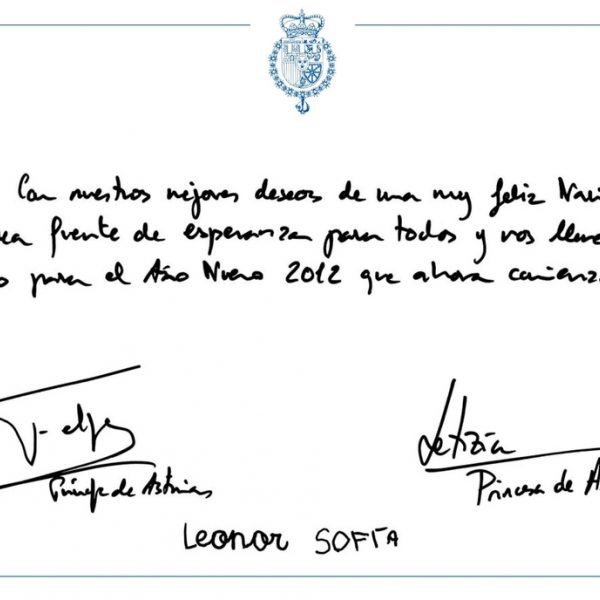 Con nuestros mejores deseos de una muy feliz Navi
sea fuente de esperanza para todos y nos llene
o para el Año Nuevo 2012 que ahora comienz
Felipe
Príncipe de Asturias
Letizia
Princesa de A
Leonor SOFÍA